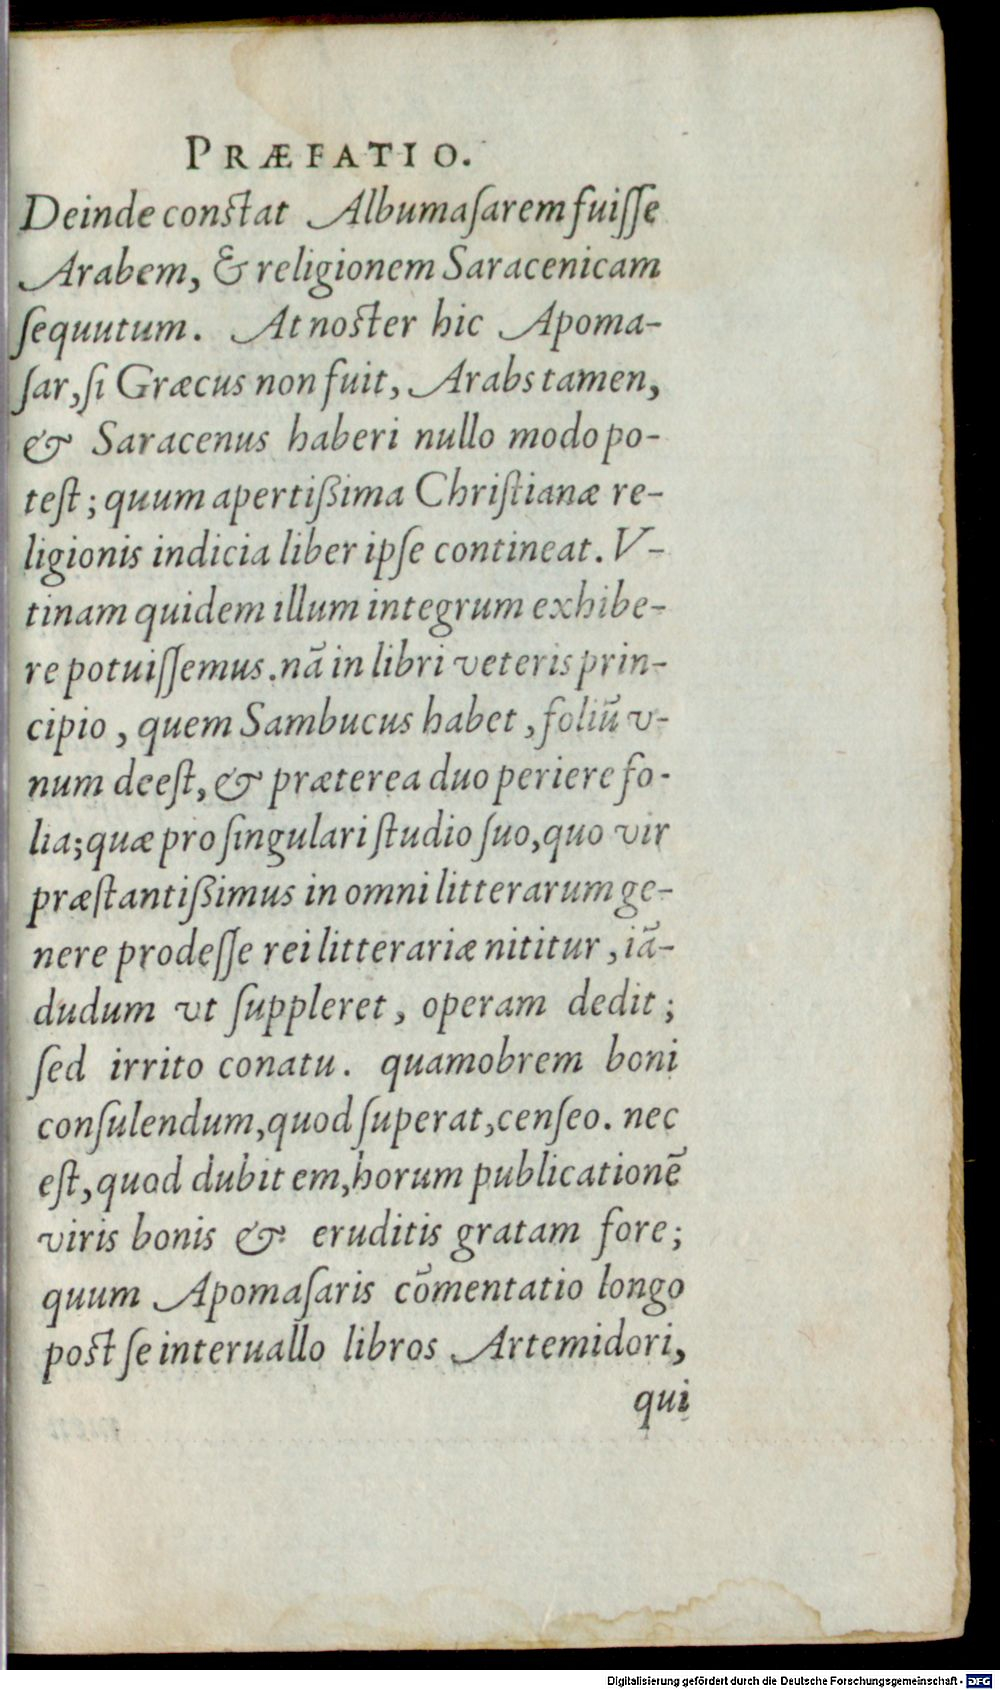 PRÆFATIO.
Deinde constat Albumaſarem fuiſſe
Arabem, & religionem Saracenicam
ſequutum. At noster hic Apoma-
ſar, ſi Græcus non fuit, Arabs tamen,
& Saracenus haberi nullo modo po-
teſt; quum apertißima Chriſtianæ re-
ligionis indicia liber ipſe contineat. V-
tinam quidem illum integrum exhibe-
re potuiſſemus. nā in libri veteris prin-
cipio, quem Sambucus habet, foliū v-
num deeſt, & præterea duo periere fo-
lia; quæ pro ſingulari ſtudio ſuo, quo vir
præſtantißimus in omni litterarum ge-
nere prodeſſe rei litterariæ nititur, iā-
dudum vt ſuppleret, operam dedit;
ſed irrito conatu. quamobrem boni
conſulendum, quod ſuperat, cenſeo. nec
eſt, quod dubitem, horum publicationē
viris bonis & eruditis gratam fore;
quum Apomaſaris cōmentatio longo
post ſe interuallo libros Artemidori,
qui
Digitalisierung gefördert durch die Deutsche Forschungsgemeinschaft - DFG